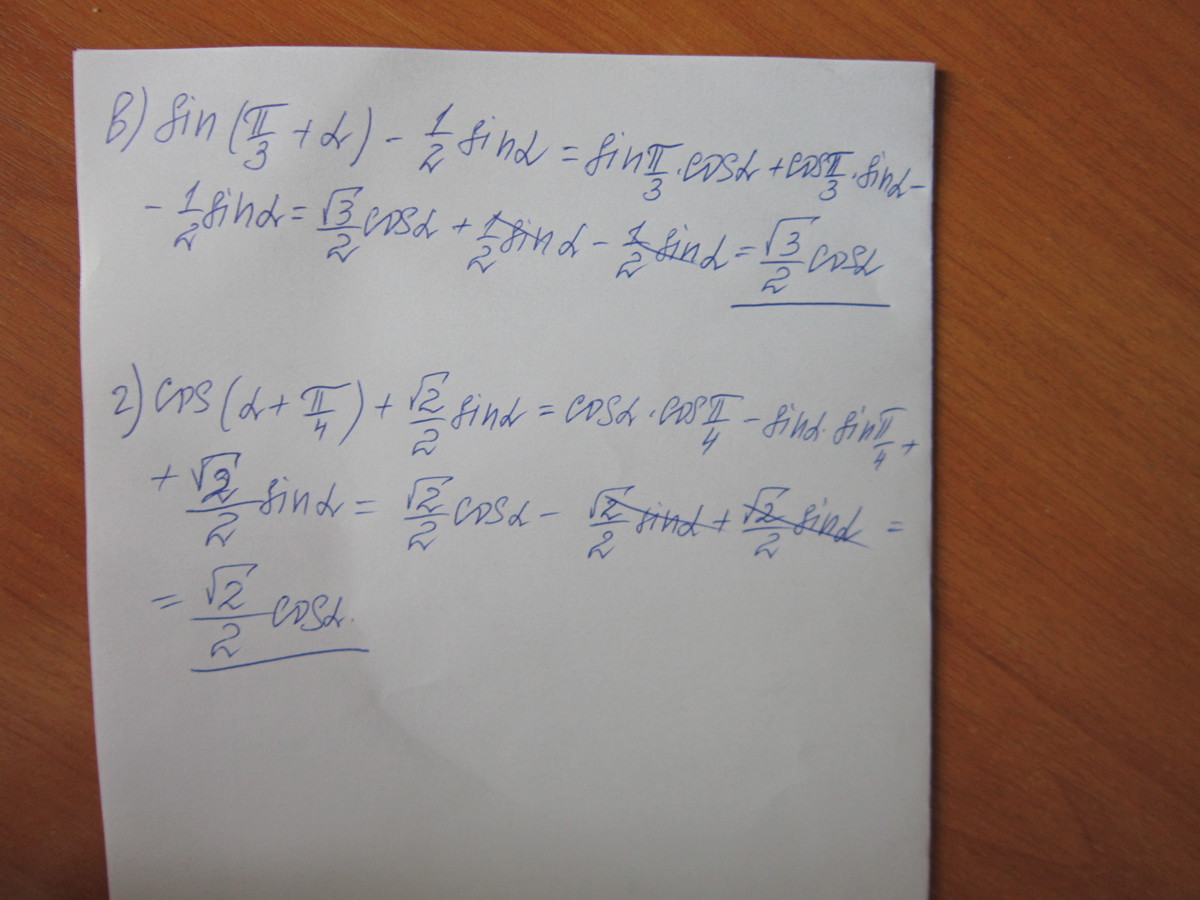 в) sin(π/3 + α) - 1/2 sinα = sin π/3 · cosα + cos π/3 · sinα -
- 1/2 sinα = √3/2 cosα + 1/2 sinα - 1/2 sinα = √3/2 cosα
г) cos(α + π/4) + √2/2 sinα = cosα · cos π/4 - sinα · sin π/4 +
+ √2/2 sinα = √2/2 cosα - √2/2 sinα + √2/2 sinα =
= √2/2 cosα.